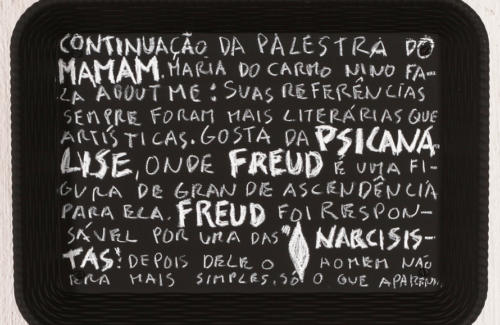 CONTINUAÇÃO DA PALESTRA DO
MAMAM. MARIA DO CARMO NINO FA-
LA ABOUT ME: SUAS REFERÊNCIAS
SEMPRE FORAM MAIS LITERÁRIAS QUE
ARTÍSTICAS. GOSTA DA PSICANÁ
LISE, ONDE FREUD É UMA FI-
GURA DE GRANDE ASCENDÊNCIA
PARA ELA. FREUD FOI RESPON-
SÁVEL POR UMA DAS " NARCISIS-
TAS". DEPOIS DELE O HOMEM NÃO
ERA MAIS SIMPLES. SÓ O QUE APAREN